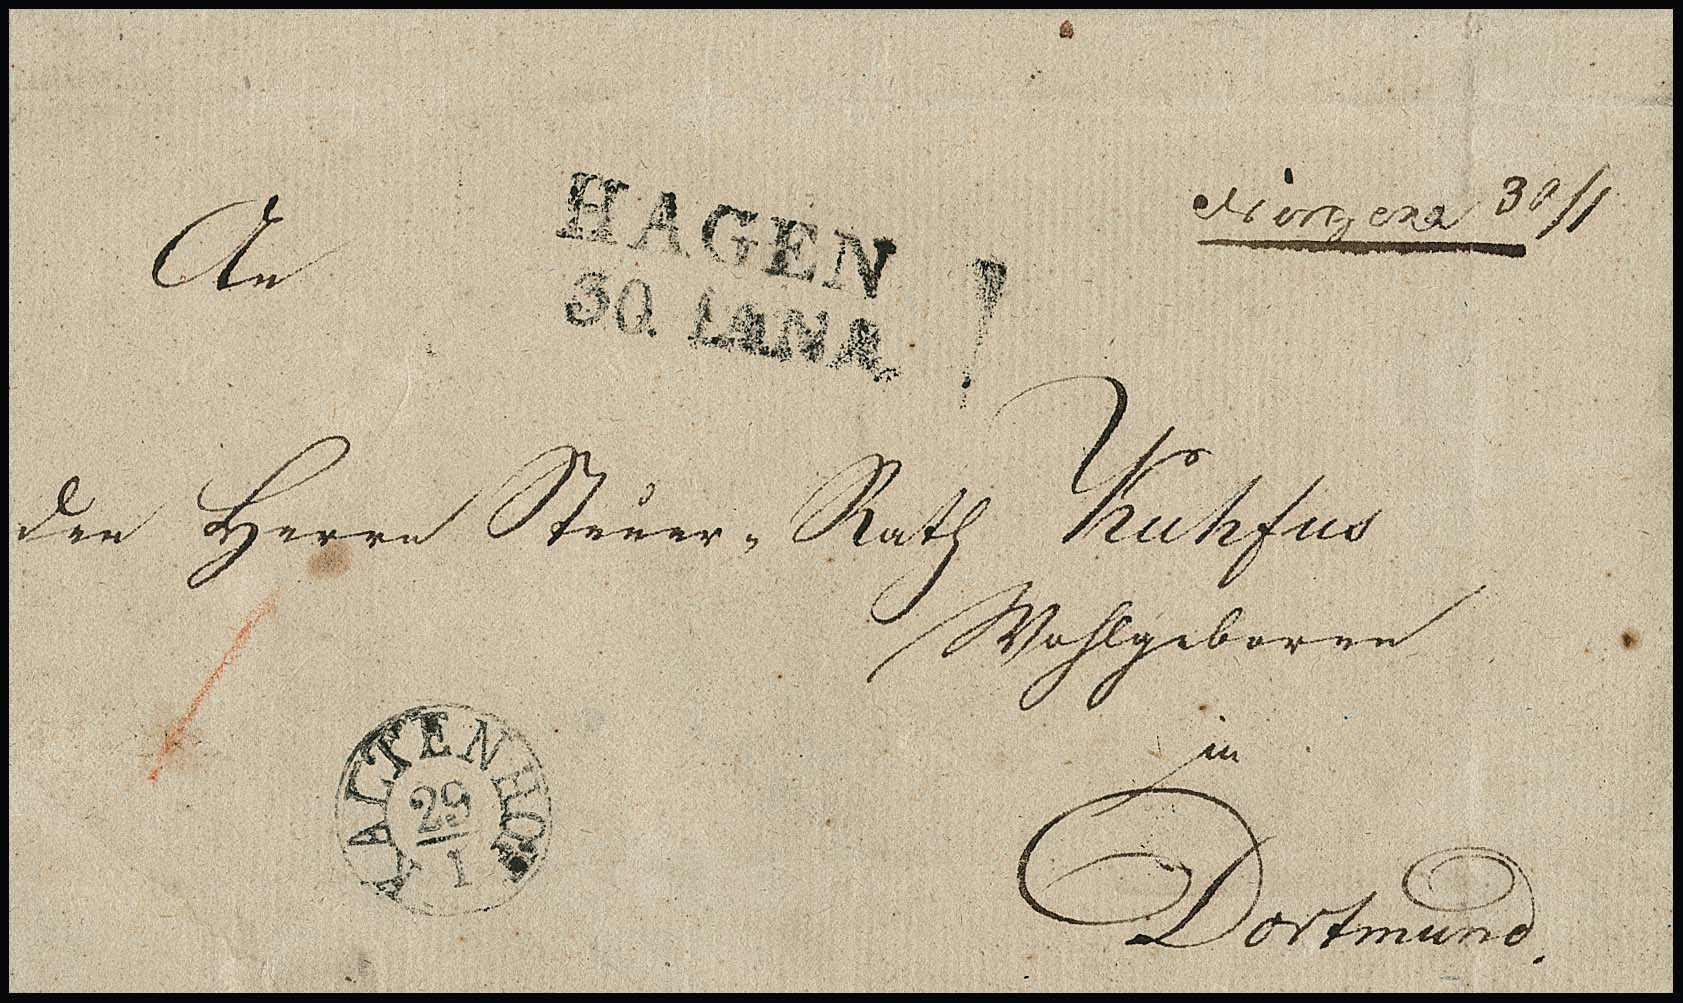 30/1
HAGEN
30. IANR.
An
den Herrn Steuer-Rath Kuhfus
Wohlgeboren
in
Dortmund.
KALTENHOF
29
1